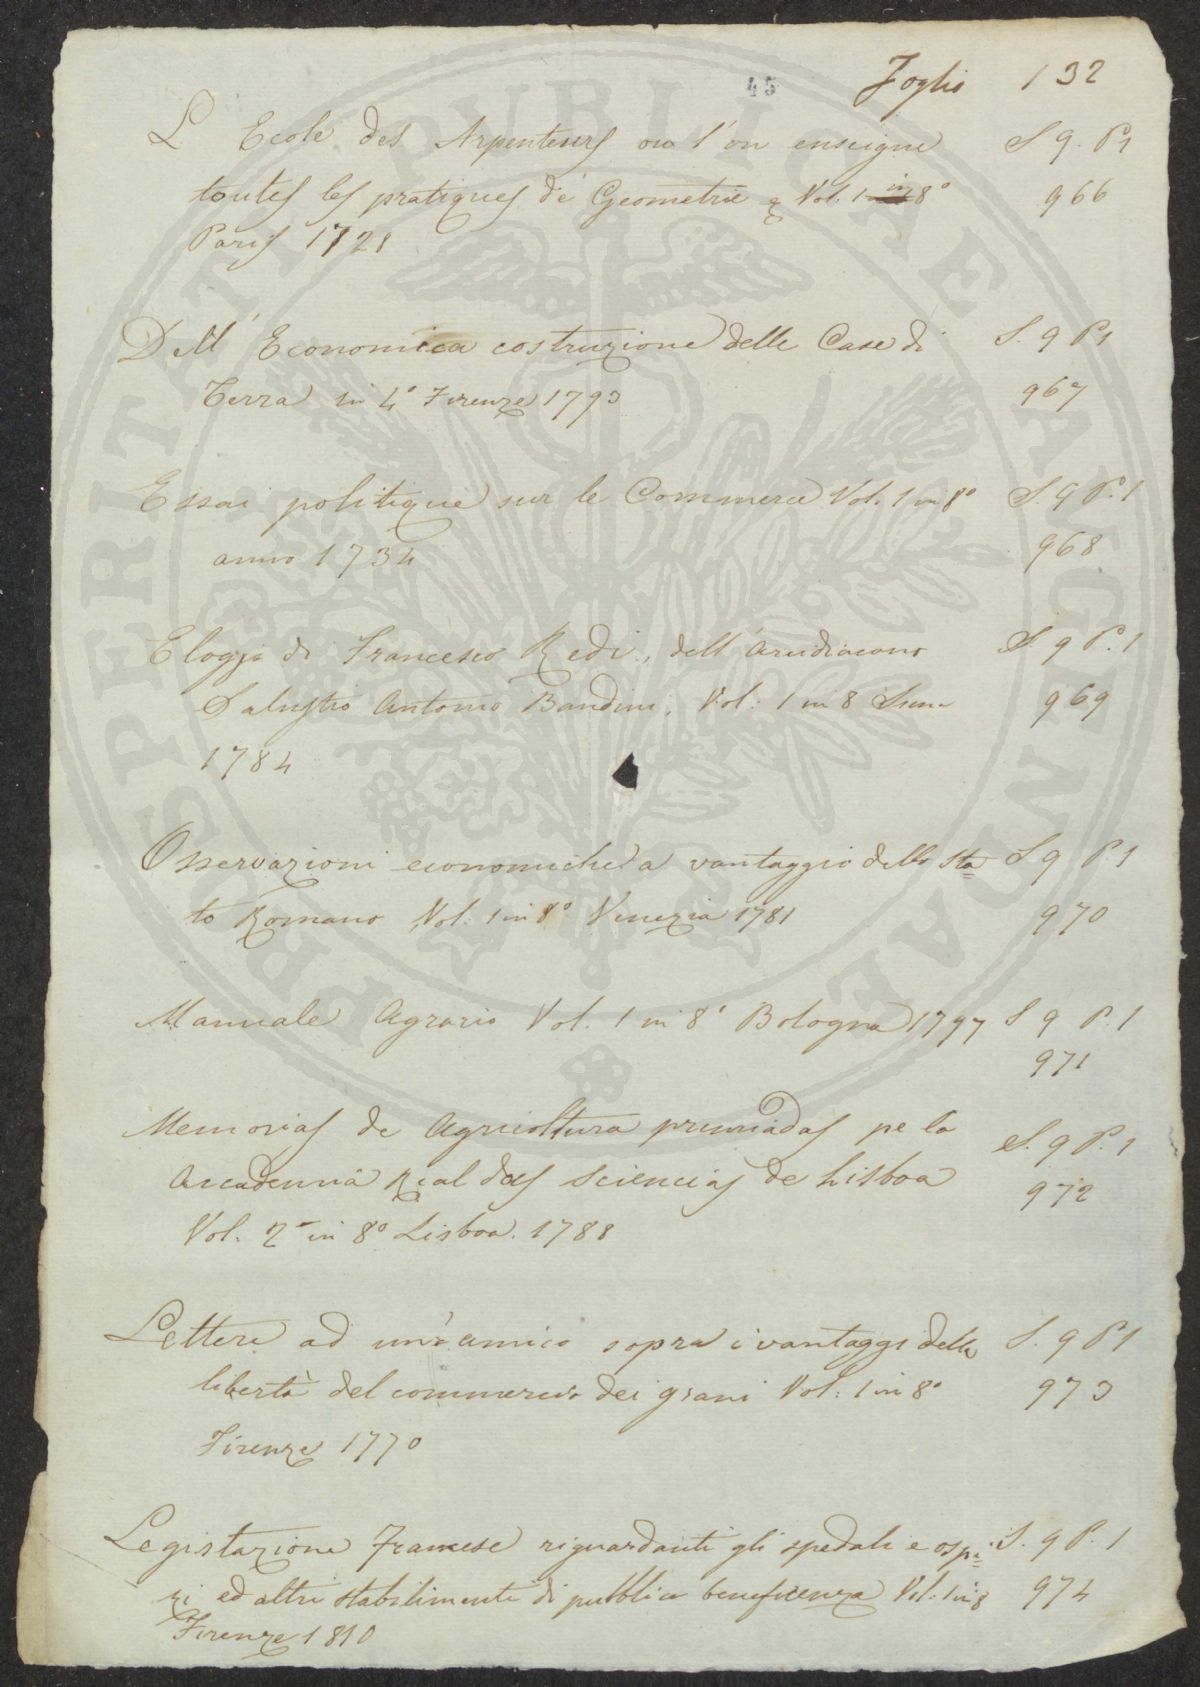 45
Foglio 132
L' Ecole des Arpenteurs ou l'on enseigne S 9. P1
toutes les pratiques de Geometrie & Vol. 1 in 8° 966
Paris 1721
Dell' Economica costruzione delle Case di S. 9 P1
Terra in 4° Firenze 1793 967
Essai politique sur le Commerce Vol. 1 in 8° S. 9 P. 1
anno 1734 968
Elogj di Francesco Redi, dell' Arcidiacono S. 9 P. 1
Salustio Antonio Bandini, Vol: 1 in 8 Siena 969
1784
Osservazioni economiche a vantaggio dello Sta= S 9 P. 1
to Romano Vol. 1 in 8° Venezia 1781 970
Manuale Agrario Vol. 1 in 8° Bologna 1797 S 9 P. 1
971
Memorias de Agricoltura premiadas pe la S. 9 P. 1
Arcademia Real das Sciencias de Lisboa 972
Vol. 2 in 8° Lisboa. 1788
Lettere ad un'amico sopra i vantaggi della S. 9 P1
libertà del commercio dei grani Vol: 1 in 8° 973
Firenze 1770
Legistazione Francese riguardanti gli spedali e ospi= S. 9 P. 1
zi ed altri stabilimenti di pubblica beneficenza Vol: 1 in 8 974
Firenze 1810
PROSPERITATI PUBLICAE AUGENDAE